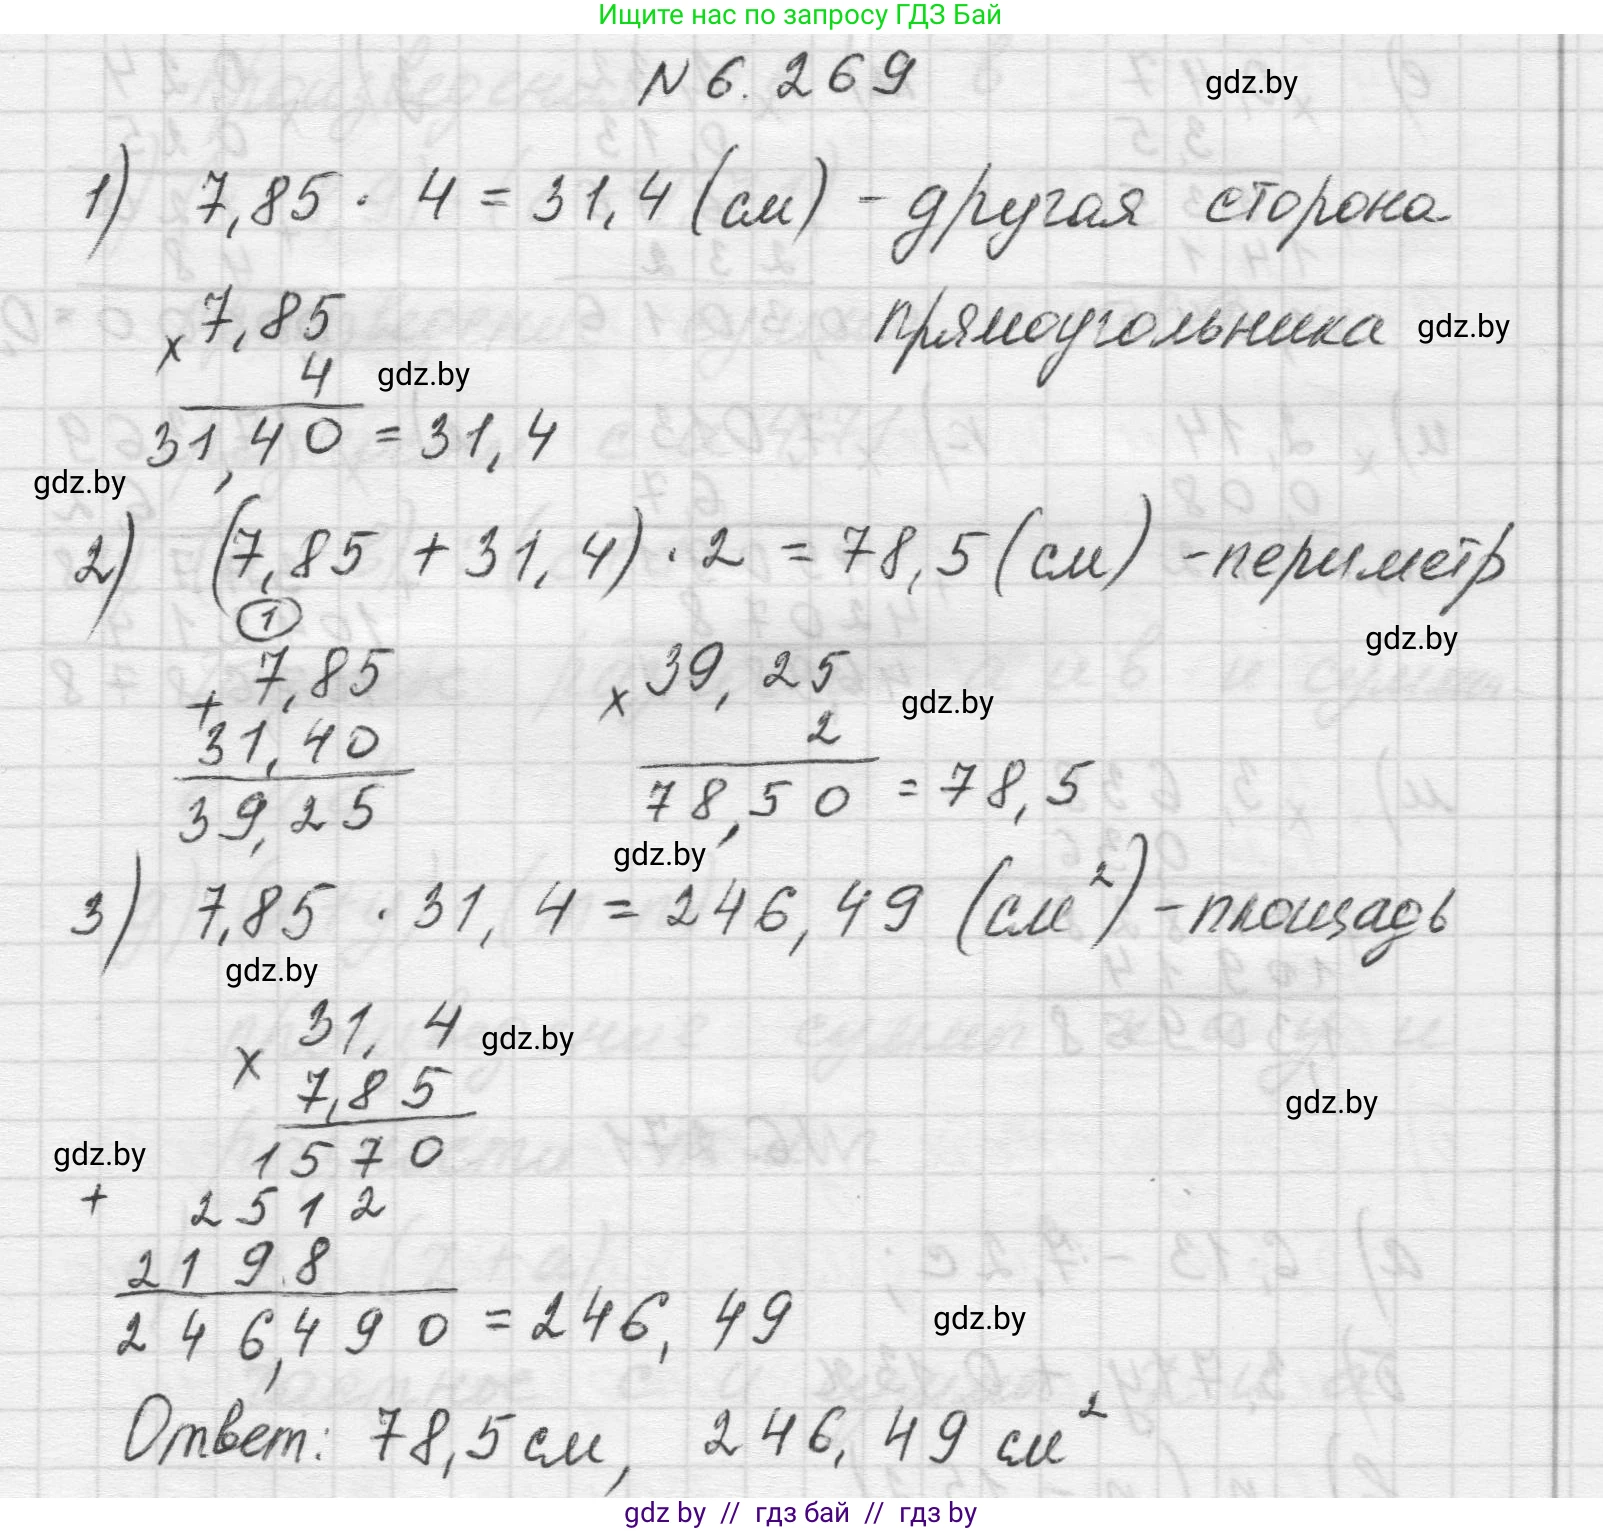 Ищите нас по запросу ГДЗ Бай
N 6.269
gdz.by
1) 7,85 · 4 = 31,4 (см) - другая сторона
прямоугольника
gdz.by
× 7,85
4
gdz.by
31,40 = 31,4
gdz.by
2) (7,85 + 31,4) · 2 = 78,5 (см) - периметр
gdz.by
1
+ 7,85
31,40
39,25
× 39,25
2
gdz.by
78,50 = 78,5
gdz.by
3) 7,85 · 31,4 = 246,49 (см²) - площадь
gdz.by
× 31,4
gdz.by
7,85
gdz.by
1570
gdz.by
+ 2512
2198
246,490 = 246,49
gdz.by
Ответ: 78,5 см, 246,49 см²
gdz by // гдз бай // гдз by